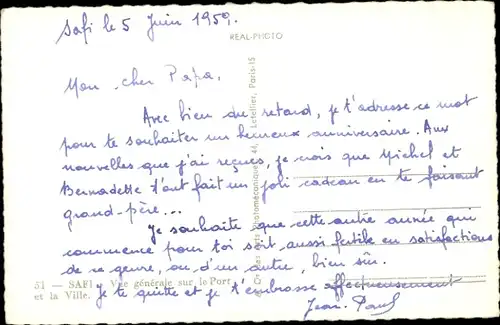 Safi le 5 Juin 1959.
REAL-PHOTO
Mon cher Papa,
Avec bien du retard, je t'adresse ce mot
pour te souhaiter un heureux anniversaire. Aux
nouvelles que j'ai reçues, je vois que Michel et
Bernadette t'ont fait un joli cadeau en te faisant
grand-père...
Je souhaite que cette autre année qui
commence pour toi soit aussi fertile en satisfactions
de ce genre, ou d'un autre, bien sûr.
Je te quitte et je t'embrasse affectueusement
Jean-Paul
51 — SAFI - Vue générale sur le Port
et la Ville.
Photomécaniques, 44, Letellier, Paris-15